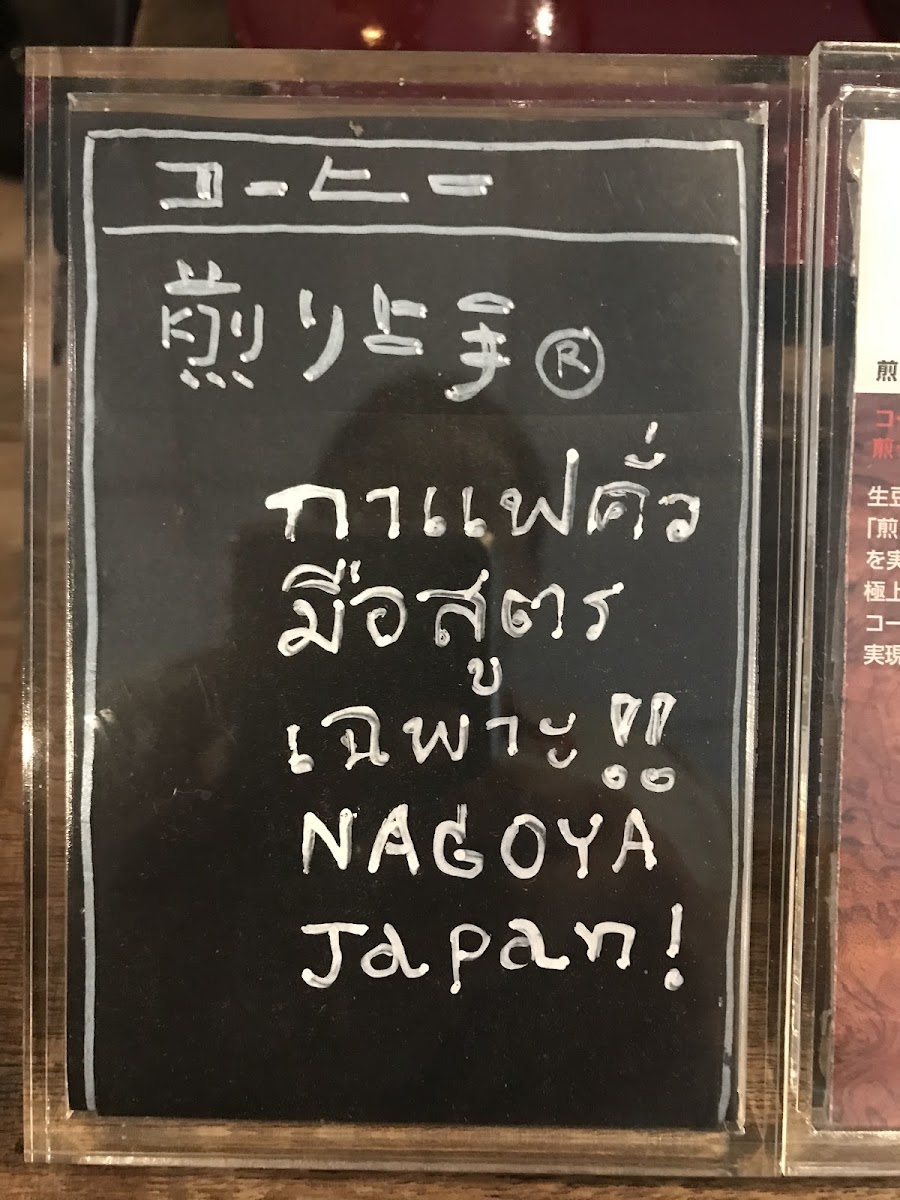 コーヒー
煎り上手®
กาแฟคั่ว
มือสูตร
เฉพาะ!!
NAGOYA
Japan!
煎
コー
煎
生豆
「煎
を実
極上
コー
実現